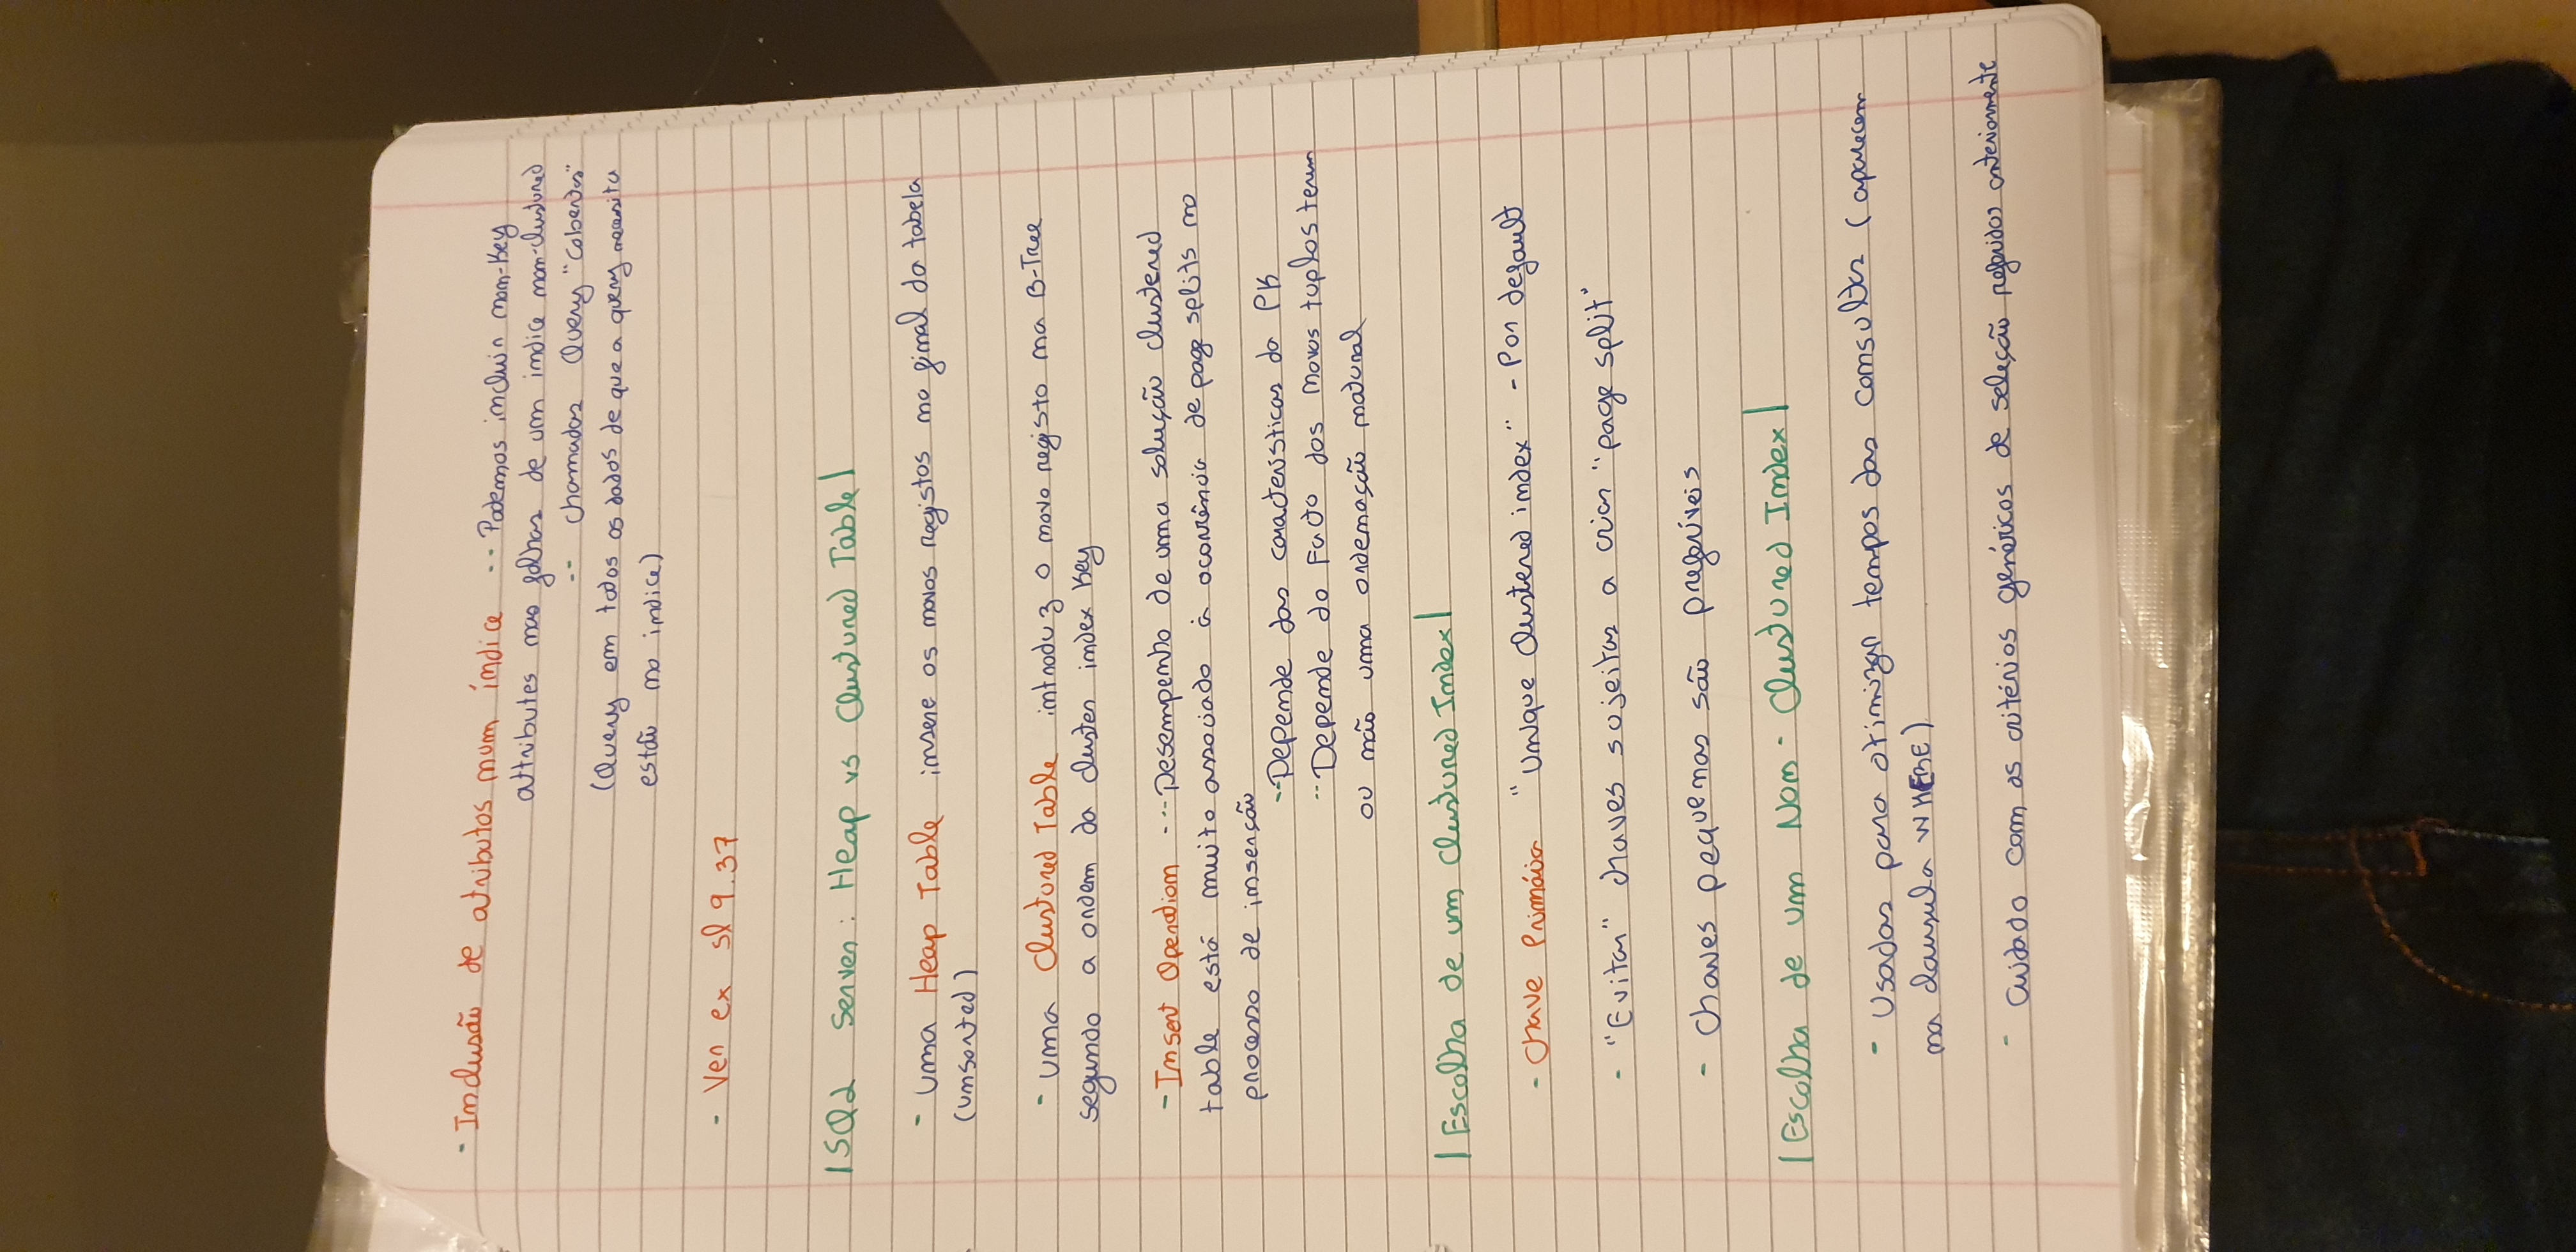 - Inclusão de atributos num índice -- Podemos incluir non-key
attributes nas folhas de um indice non-clustured
-- chamadas Query "Cobertas"
(Query em todos os dados de que a query necessita
estão no indice)
- Ver ex sl 9.37
|SQL Server: Heap vs Clustured Table|
- Uma Heap Table insere os novos registos no final da tabela
(unsorted)
- Uma Clustured Table introduz o novo registo na B-Tree
segundo a ordem da cluster index key
- Insert Operation --- Desempenho de uma solução clustered
table está muito associado à ocorrência de page splits no
processo de inserção
-- Depende das características da PK
-- Depende do Facto dos novos tuplos terem
ou não uma ordenação natural
|Escolha de um Clustured Index|
- Chave Primária "Unique Clustered index" - Por default
- "Evitar" chaves sujeitas a criar "page split"
- Chaves pequenas são preferíveis
|Escolha de um Non-Clustured Index|
- Usadas para otimizar tempos das consultas (aparecem
na clausula WHERE)
- Cuidado com os critérios genéricos de seleção referidos anteriormente